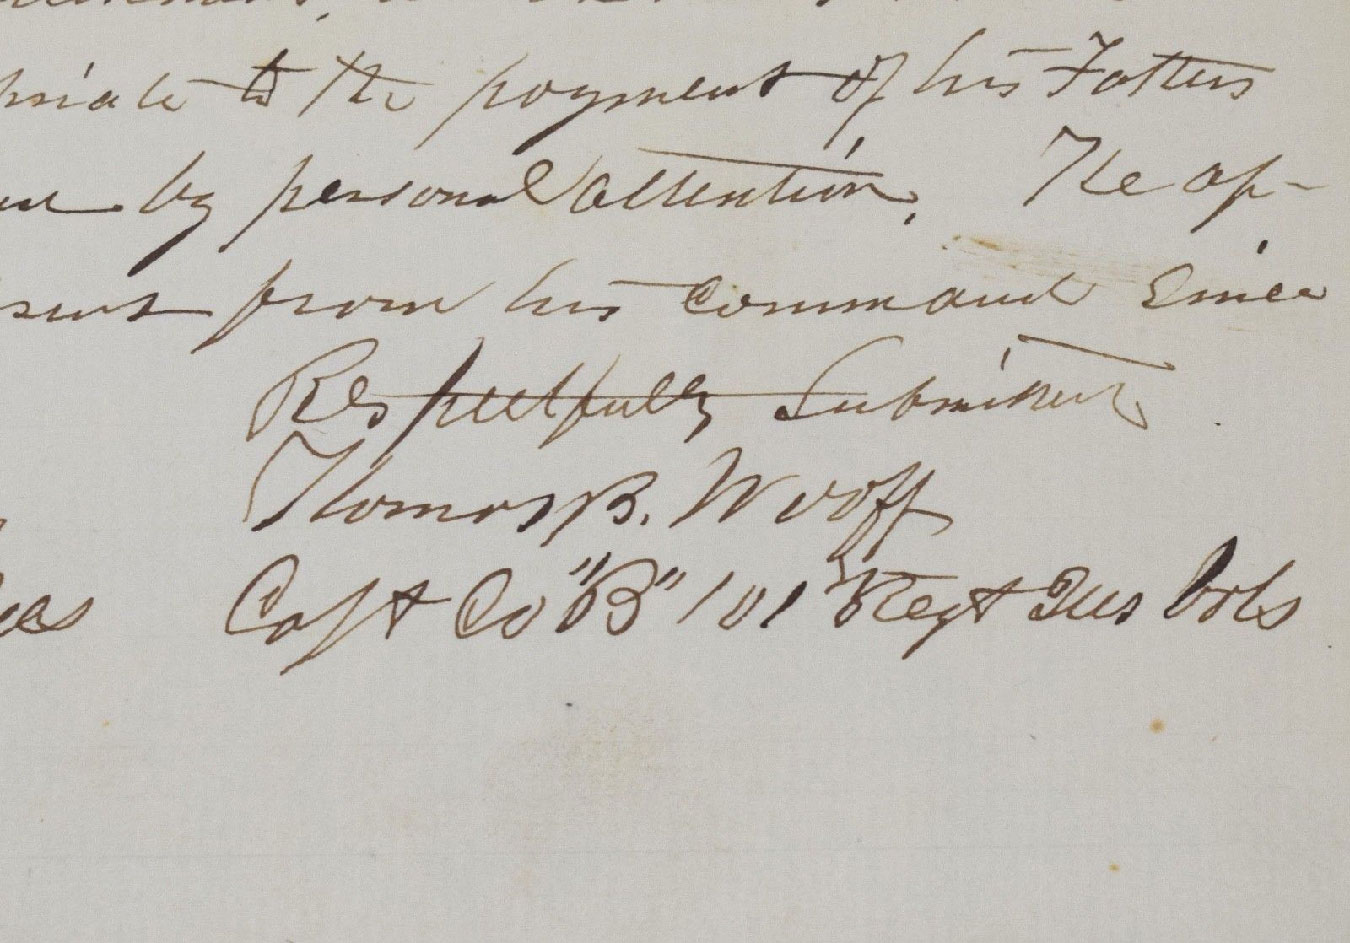 to the payment of his Fathers
by personal attention. The ap-
from his command Since
Respectfully Submitted
Thomas B. Wooff
Capt Co "B" 101 Regt Ills Vols